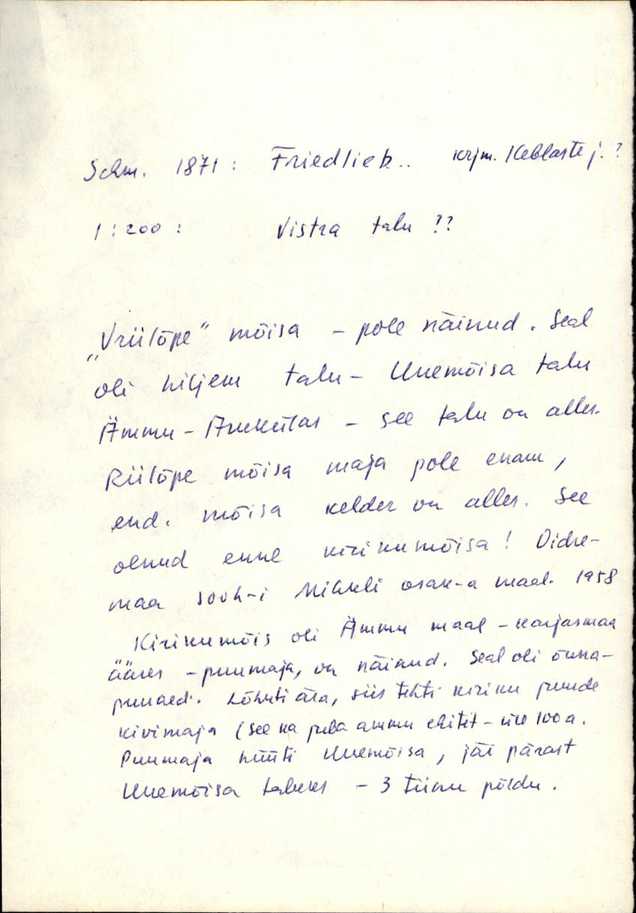 Schm. 1871 : Friedlieb.. krjm. Keblaste j. ?
1:200 : Vistra talu ??
„Vriilõpe" mõisa – pole näinud. Seal
oli hiljem talu – Unemõisa talu
Ämmu – – see talu on alles.
Riilõpe mõisa maja pole enam,
end. mõisa kelder on alles. See
olnud enne kirikumõisa! Oidre-
maa sovh-i Mihkli osak-a maal. 1958
Kirikumõis oli Ämmu maal – karjasmaa
ääres – puumaja, on näinud. Seal oli õuna-
puuaed. Lõhuti ära, siis tehti kiriku juurde
kivimaja (see ka juba ammu ehitet – üle 100 a.
Puumaja hüüti Unemõisa, jäi pärast
Unemõisa taluks – 3 tiinu põldu.